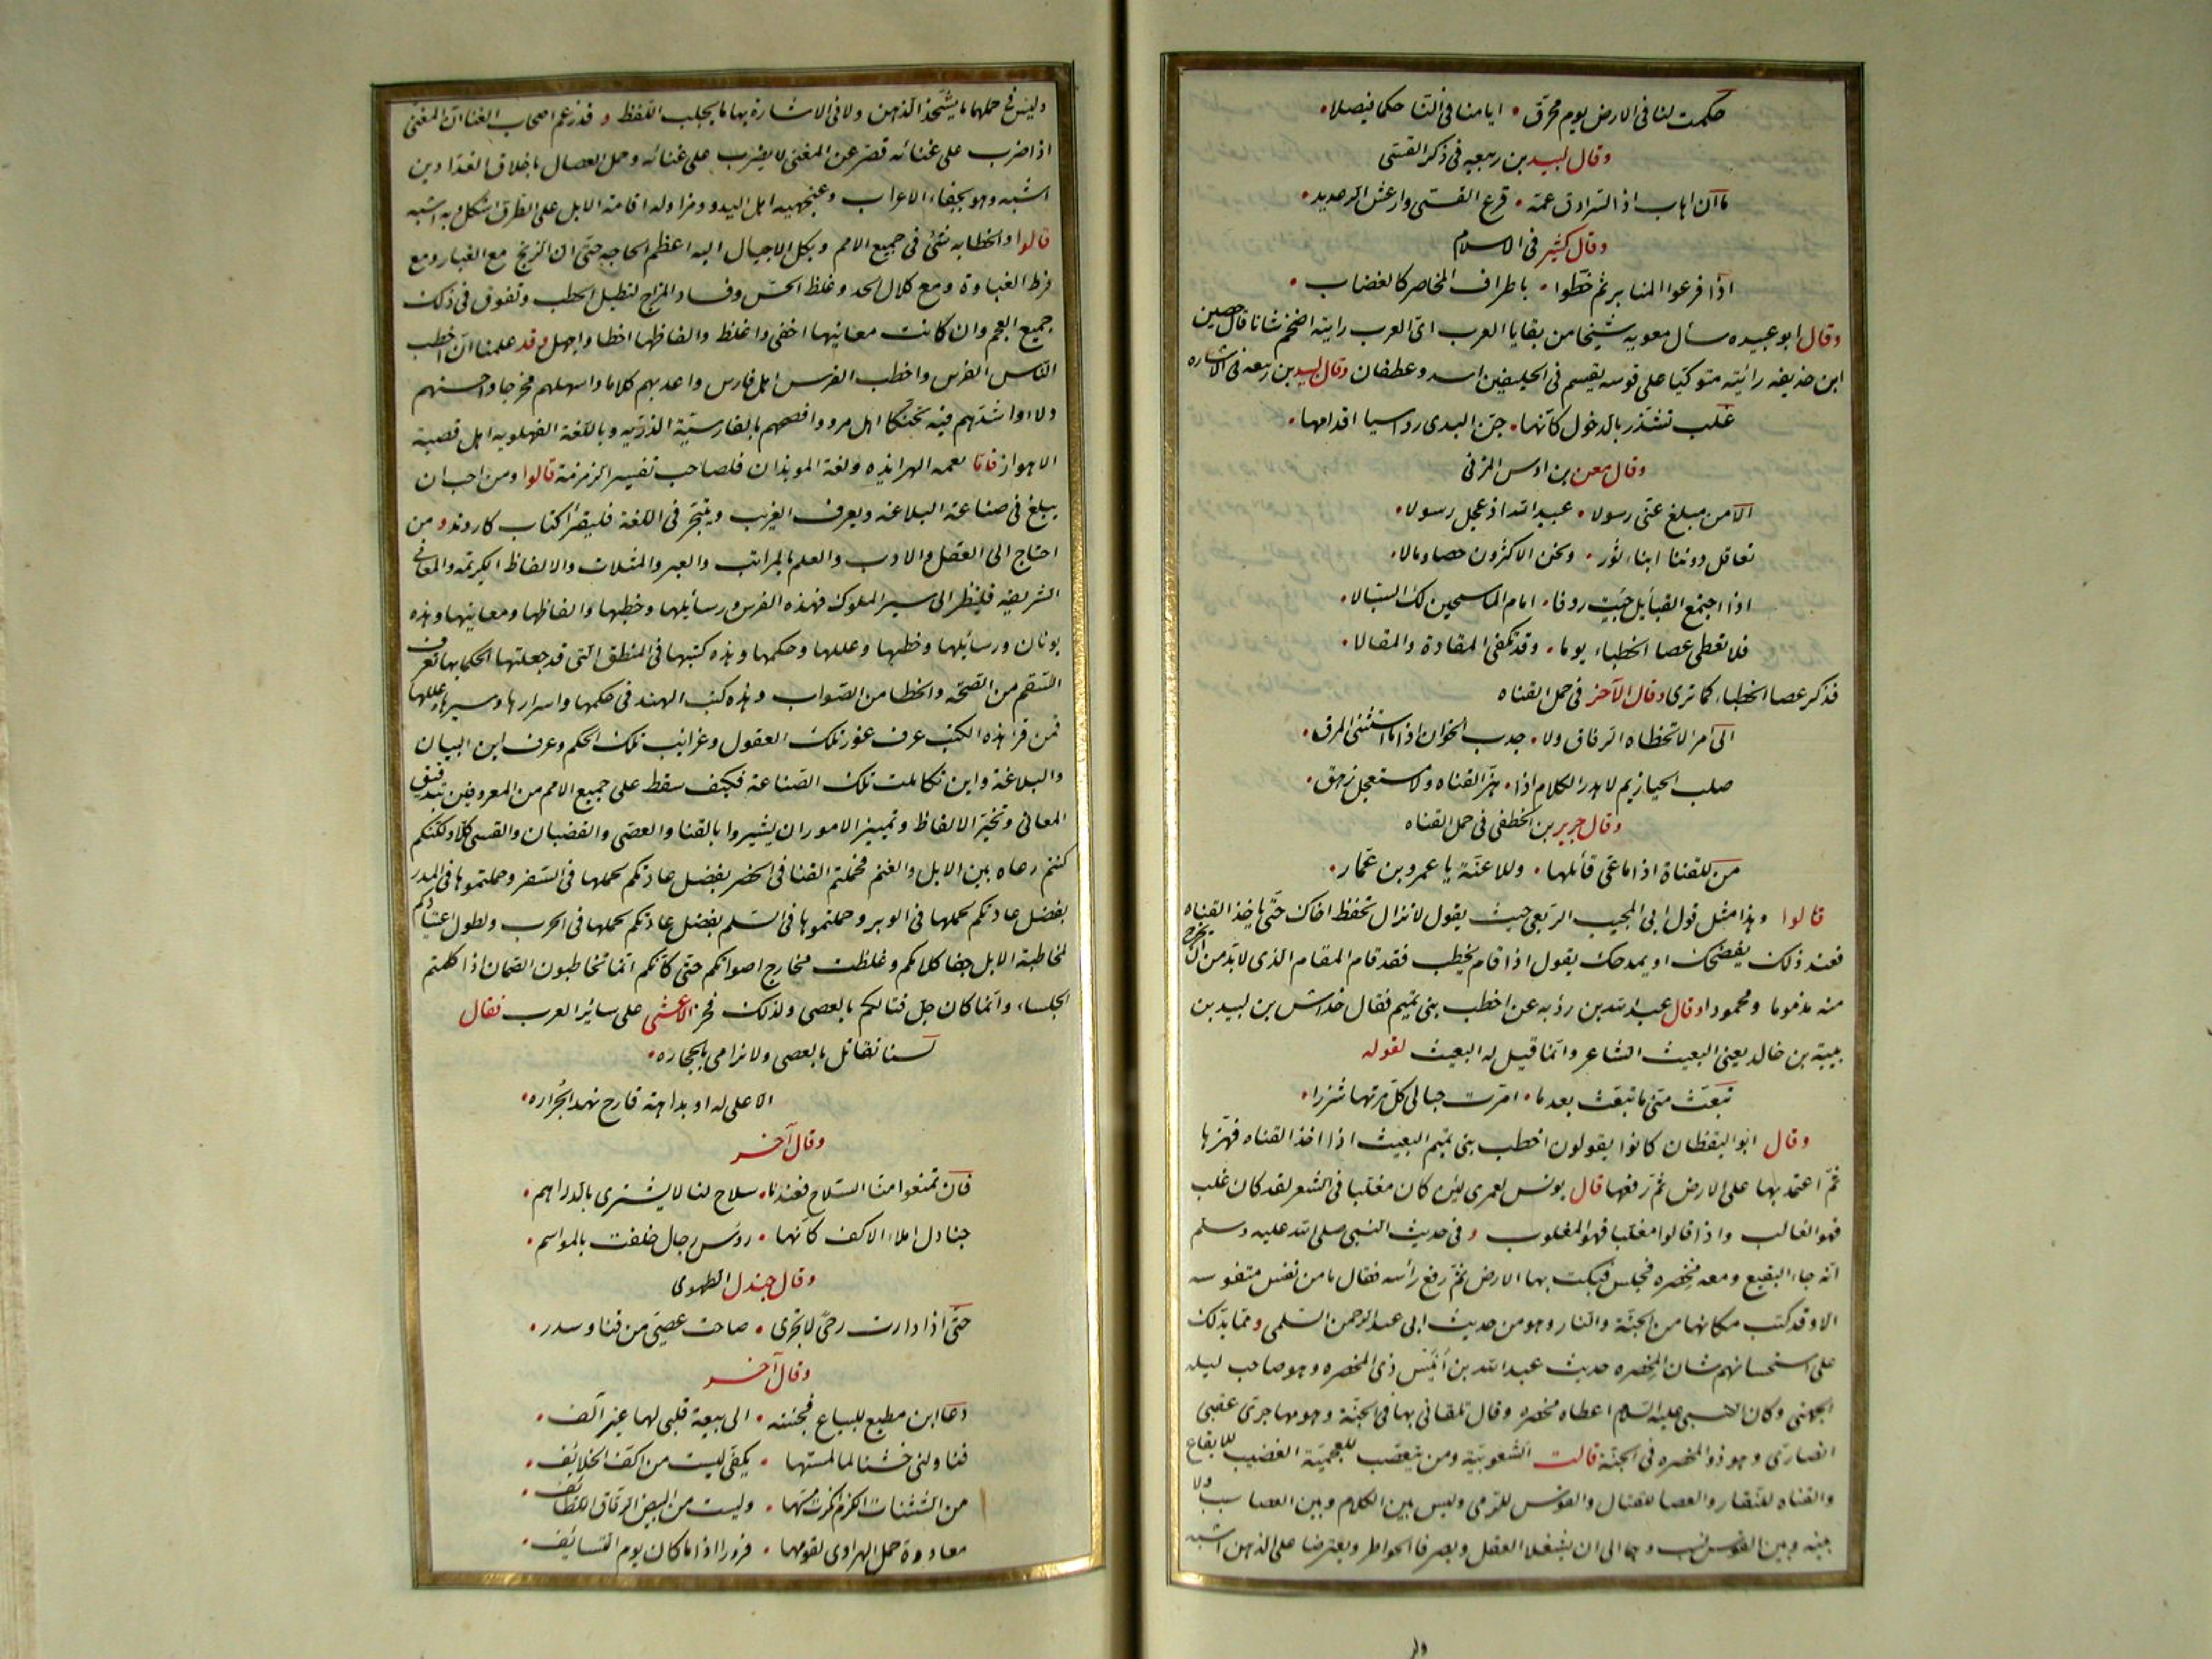 حكمت لنا فى الارض يوم محرّق • ايامنا فى النّا حكما فيصلا •
وقال لبيد بن ربيعه فى ذكر القسّى
ما آن اهاب اذا السّرادق عمّه • قرع القسّى وارعش الرعديد •
وقال كثيّر فى الاسلام
اذا فرعوا المنابر ثمّ خطّوا • باطراف المخاصر كالغضاب •
وقال ابو عبيده سأل معويه شيخا من بقايا العرب اىّ العرب رايته اضخم شانا قال حصين
ابن حذيفه رائيته متوكّيا على قوسه يقسم فى الحليفين اسد وغطفان وقال لبيد بن ربيعه فى الاشاره
غلب تشذّر بالدخول كانّها • جنّ البدى رواسيا اقدامها •
وقال معن بن اوس المزنى
الا من مبلغ عنّى رسولا • عبيد الله اذ عجل رسولا •
تعاقل دوننا ابناء ثور • ونحن الاكثرون حصا ومالا •
اذا اجتمع القبأيل جئت ردفا • امام الماسحين لك السّبالا •
فلا تعطى عصا الخطباء يوما • وقد تكفى المقادة والمقالا •
فذكر عصا الخطباء كما ترى وقال الآخر فى حمل القناه
الى امرء لا تخطاه الرفاق ولا • جدب الخوان اذا ما استنشئ المرق •
صلب الحيازيم لا هدر الكلام اذا • هزّ القناه ولا مستعجل زهق •
وقال جرير بن الخطفى فى حمل القناه
من للقناة اذا ما عىّ قأيلها • وللاعنّة يا عمرو بن عمّار •
قالوا وهذا مثل قول ابى المجيب الرّبعى حيث يقول لا تزال تحفظ اخاك حتّى ياخذ القناه
فعند ذلك يفضحك او يمدحك يقول اذا قام يخطب فقد قام المقام الذى لا بدّ من ان يخرج
منه مذموما ومحمودا وقال عبد الله بن رؤبه عن اخطب بنى تميم فقال خداش بن لبيد بن
بيبة بن خالد يعنى البعيث الشاعر وانّما قيل له البعيث لقوله
تبعّث منّى ما تبعّث بعد ما • امرّت حبالى كلّ مرّتها شزرا •
وقال ابو اليقظان كانوا يقولون اخطب بنى تميم البعيث اذا اخذ القناه فهزّها
ثمّ اعتمد بها على الارض ثمّ رفعها قال يونس لعمرى لئن كان مغلّبا فى الشعر لقد كان غلب
فهو الغالب واذا قالوا مغلّبا فهو المغلوب وفى حديث النبى صلى الله عليه وسلم
انّه جاء البقيع ومعه مخصره فجلس فنكت بها الارض ثمّ رفع رأسه فقال ما من نفس منفوسه
الا وقد كتب مكانها من الجنّة والنار وهو من حديث ابى عبد الرحمن السّلمى وممّا يدّلك
على استحسانهم شان المخصره حديث عبد الله بن أنيس ذى المخصره وهو صاحب ليله
الجهنى وكان النبى عليه السّلام اعطاه مخصره وقال تلقانى بها فى الجنّة وهو مهاجرىّ عقبى
انصارىّ وهو ذو المخصره فى الجنّة قالت الشّعوبيّة ومن يتعصّب للعجميّة القضيب للايقاع
والقناه للبقار والعصا للقتال والقوس للرّمى وليس بين الكلام وبين العصا سبب ولا
بينه وبين القوس نسب وهما الى ان يشغلا العقل ويصرفا الخواطر ويعترضا على الذهن اشبه
ولي
وليس فى حملهما ما يشحّذ الذهن ولا فى الاشارة بها ما يجلب اللّفظ وقد زعم اصحاب الغنا انّ المغنّى
اذا ضرب على غنائه قصّر عن المغنى لا يضرب على غنائه وحمل العصا ل باخلاق الفدّادين
اشبه وهو بجفاء الاعراب وعنجهيه اهل البدو ومزاوله اقامة الابل على الطّرق اشكل وبه اشبه
قالوا والخطابه شئ فى جميع الامم وبكل الاجيال اليه اعظم الحاجه حتّى ان الزنج مع الغباره ومع
فرط الغباوة ومع كلال الحد وغلظ الحسّ وفساد المزاج لتطيل الخطب وتفوق فى ذلك
جميع العجم وان كانت معانيها اخفى واغلظ والفاظها اخطا واجهل وقد علمنا انّ اخطب
النّاس الفرس واخطب الفرس اهل فارس واعدبهم كلاما واسهلهم مخرجا واحسنهم
ولاء واشدّهم فيه تحنّكا اهل مرو وافصحهم بالفارسيّة الدّريّه وباللّغة الفهلويه اهل قصبة
الاهواز فامّا نغمه الهرابذه ولغة الموبذان فلصاحب تفسير الزمزمة قالوا ومن احب ان
يبلغ فى صناعة البلاغه ويعرف الغريب ويتبحّر فى اللغة فليقرأ كتاب كاروند ومن
احتاج الى العقل والادب والعلم بالمراتب والعبر والمثلات والالفاظ الكريمه والمعانى
الشريفه فلينظر الى سير الملوك فهذه الفرس ورسأيلها وخطبها والفاظها ومعانيها وهذه
يونان ورسأيلها وخطبها وعللها وحكمها وهذه كتبها فى المنطق الّتى قد جعلتها الحكما بها تعرف
السّقم من الصّحّه والخطا من الصّواب وهذه كتب الهند فى حكمها واسرارها وسيرها وعللها
فمن قرأ هذه الكتب عرف غور تلك العقول وغرائب تلك الحكم وعرف اين البيان
والبلاغة واين تكاملت تلك الصّناعة فكيف سقط على جميع الامم من المعروفين بتدقيق
المعانى وتخيّر الالفاظ وتمييز الامور ان يشيروا بالقنا والعصّى والقضبان والقسى كلّا ولكنّكم
كنتم رعاه بين الابل والغنم فحملتم القنا فى الحضر بفضل عادتكم بحملها فى السّفر وحملتموها فى المدر
بفضل عادتكم بحملها فى الوبر وحملتموها فى السّلم بفضل عادتكم بحملها فى الحرب ولطول اعتيادكم
لمخاطبة الابل جفا كلامكم وغلظت مخارج اصواتكم حتّى كأنّكم انّما تخاطبون الصّمان اذا كلمتم
الجلساء وانّما كان جلّ قتالكم بالعصى ولذلك فخر الاعشى على سائر العرب فقال
لسنا نقاتل بالعصى ولا نرامى بالحجاره •
الا على له او بداهة قارح نهد الجُزاره •
وقال آخر
فان تمنعوا منّا السّلاح فعندنا • سلاح لنا لا يشترى بالدراهم •
جنادل املاء الاكف كانّها • رؤس رجال خلفت بالمواسم •
وقال جندل الطّهوى
حتّى اذا دارت رحىّ لا تجرى • صاحت عصىّ من قنا وسدر •
وقال آخر
دعا ابن مطيع للبياع فجئته • الى بيعة قلبى لها غير آلف •
فناولنى خشنا لما لمستها • بكفّى ليست من اكفّ الخلائف •
من الشّثنات الكزم انكرت مسّها • وليست من البيض الرقاق اللّطائف •
معاودة حمل الهراوى لقومها • فرورا اذا ما كان يوم التّسائف •